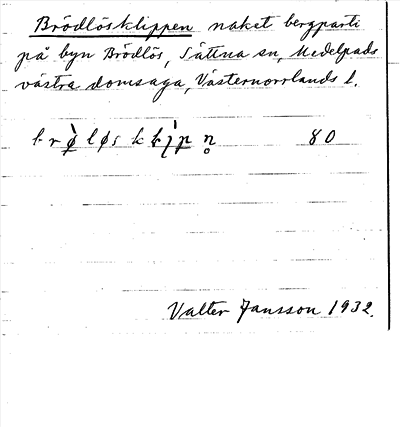 Brödlösklippen naket bergparti
på byn Brödlös, Sättna sn, Medelpads
västra domsaga, Västernorrlands l.
80
Valter Jansson 1932.